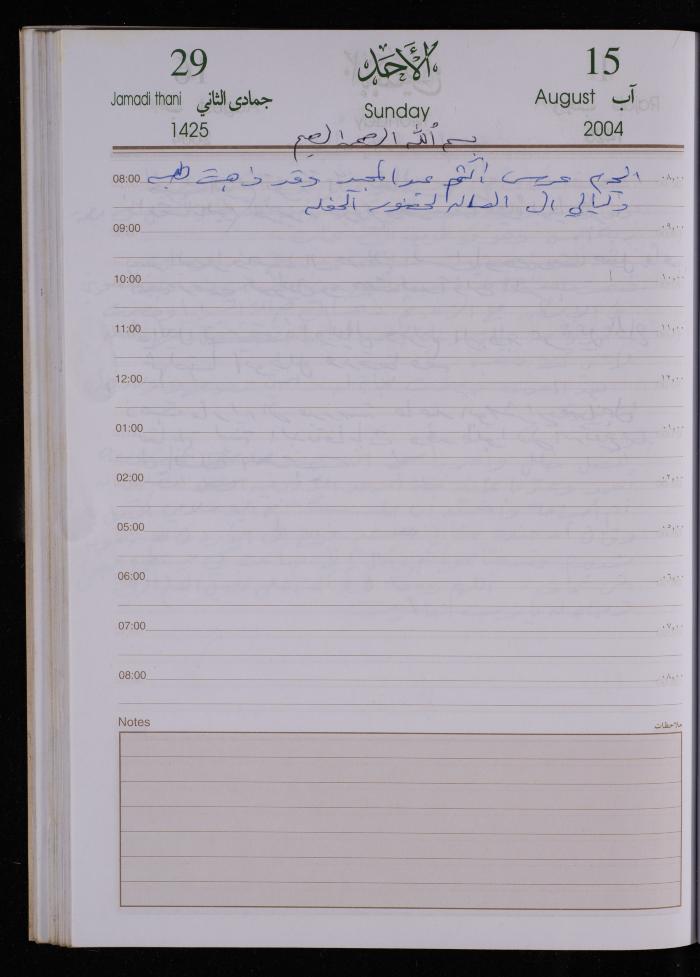 29 الأحد 15
Jamadi thani جمادى الثاني Sunday August آب
1425 2004
بسم الله الرحمن الرحيم
08:00 اليوم عرس أكثم عبد المجيد وقد ذهبت ٠٨,٠٠
الى الصاله لحضور الحفله
09:00 ٠٩,٠٠
10:00 ١٠,٠٠
11:00 ١١,٠٠
12:00 ١٢,٠٠
01:00 ٠١,٠٠
02:00 ٠٢,٠٠
05:00 ٠٥,٠٠
06:00 ٠٦,٠٠
07:00 ٠٧,٠٠
08:00 ٠٨,٠٠
Notes ملاحظات